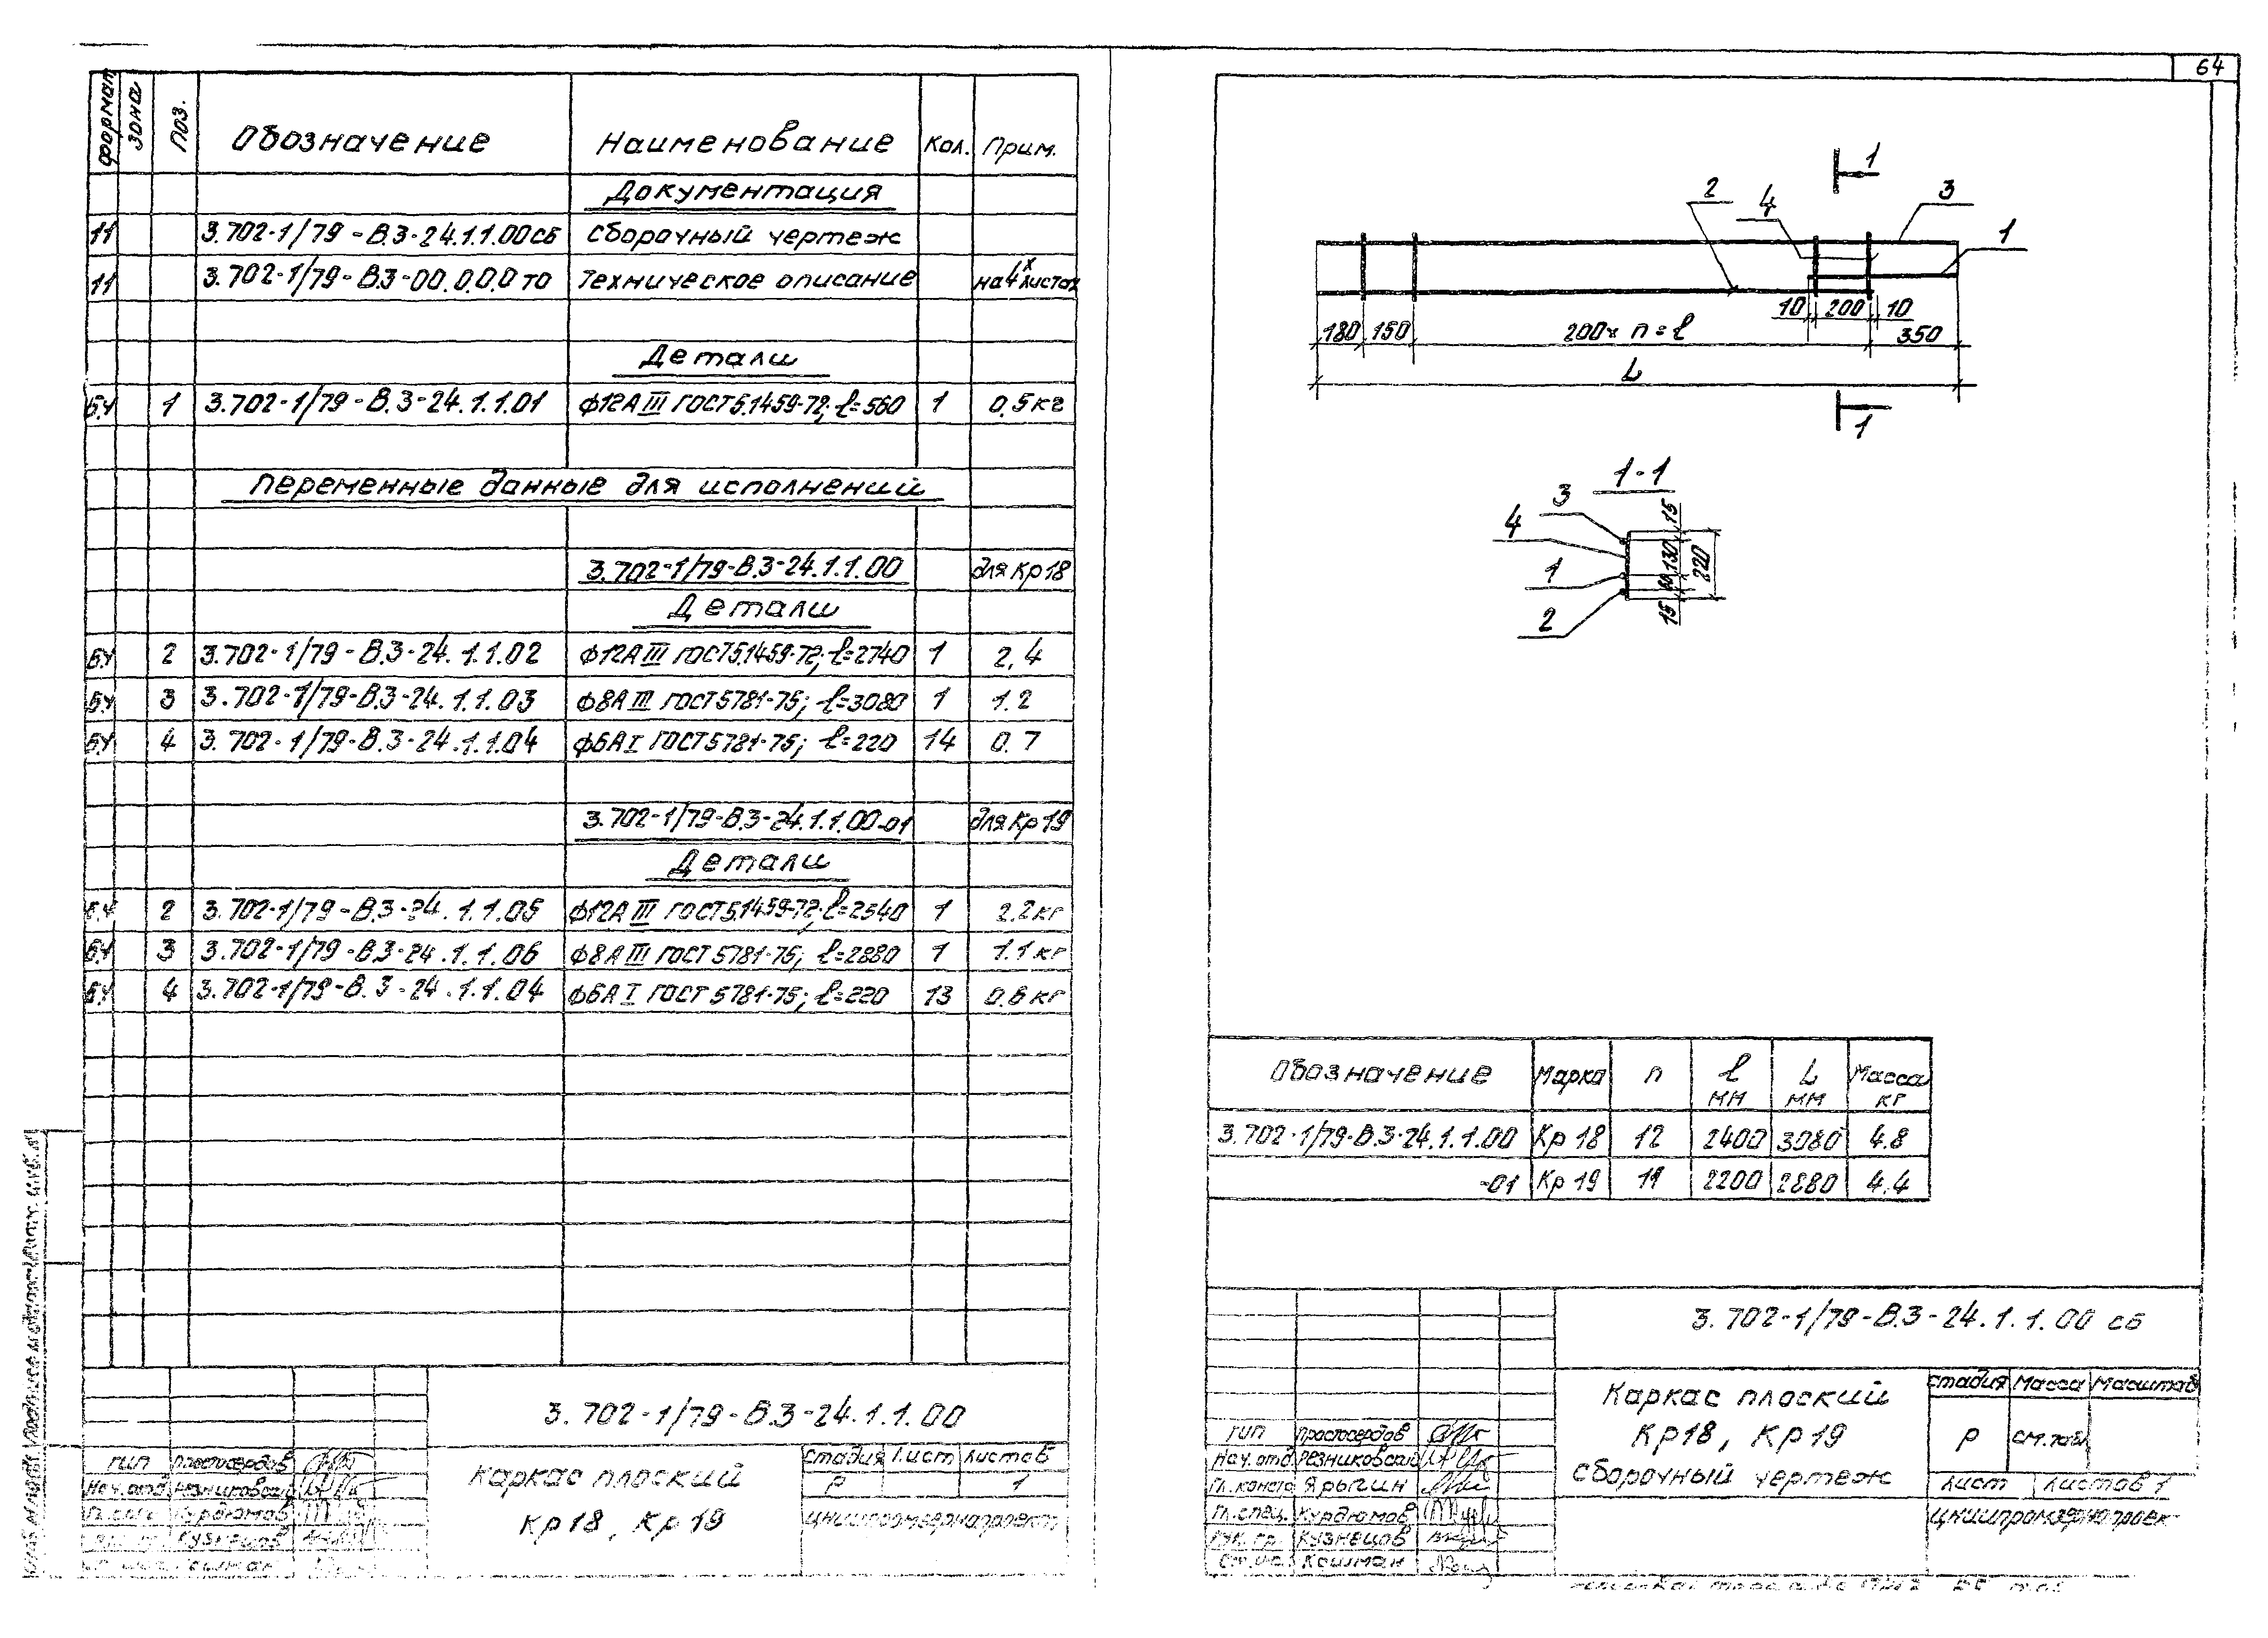 64
Формат Зона Поз. Обозначение Наименование Кол. Прим.
Документация
11 3.702-1/79-В.3-24.1.1.00сб сборочный чертеж
11 3.702-1/79-В.3-00.0.0.0 то Техническое описание на 4х листах
Детали
БЧ 1 3.702-1/79-В.3-24.1.1.01 Ф12АIII ГОСТ5.1459-72; ℓ=560 1 0.5кг
Переменные данные для исполнений
3.702-1/79-В.3-24.1.1.00 для Кр18
Детали
БЧ 2 3.702-1/79-В.3-24.1.1.02 Ф12АIII ГОСТ5.1459-72; ℓ=2740 1 2,4
БЧ 3 3.702-1/79-В.3-24.1.1.03 Ф8АIII ГОСТ5781-75; ℓ=3080 1 1.2
БЧ 4 3.702-1/79-В.3-24.1.1.04 Ф6АI ГОСТ5781-75; ℓ=220 14 0.7
3.702-1/79-В.3-24.1.1.00-01 для Кр19
Детали
БЧ 2 3.702-1/79-В.3-24.1.1.05 Ф12АIII ГОСТ5.1459-72; ℓ=2540 1 2.2кг
БЧ 3 3.702-1/79-В.3-24.1.1.06 Ф8АIII ГОСТ5781-75; ℓ=2880 1 1.1кг
БЧ 4 3.702-1/79-В.3-24.1.1.04 Ф6АI ГОСТ5781-75; ℓ=220 13 0.6кг
3.702-1/79-В.3-24.1.1.00
Каркас плоский
Кр18, Кр19
Стадия Лист Листов
Р 1
ЦНИИпромзернопроект
ГИП Простосердов
Нач.отд Резниковский
Курдюмов
Кузнецов
1
2 4 3
1
10 200 10
180 150 200×n=ℓ 350
L
1
1-1
3
4
1
2
15 130 60 15 220
Обозначение Марка n ℓ мм L мм Масса кг
3.702-1/79-В.3-24.1.1.00 Кр18 12 2400 3080 4.8
-01 Кр19 11 2200 2880 4.4
3.702-1/79-В.3-24.1.1.00 сб
Каркас плоский
Кр18, Кр19
Сборочный чертеж
Стадия Масса Масштаб
Р см.табл
Лист Листов 1
ЦНИИпромзернопроек
ГИП Простосердов
Нач.отд Резниковский
Гл.констр Ярыгин
Гл.спец. Курдюмов
Рук.гр. Кузнецов
Койлман